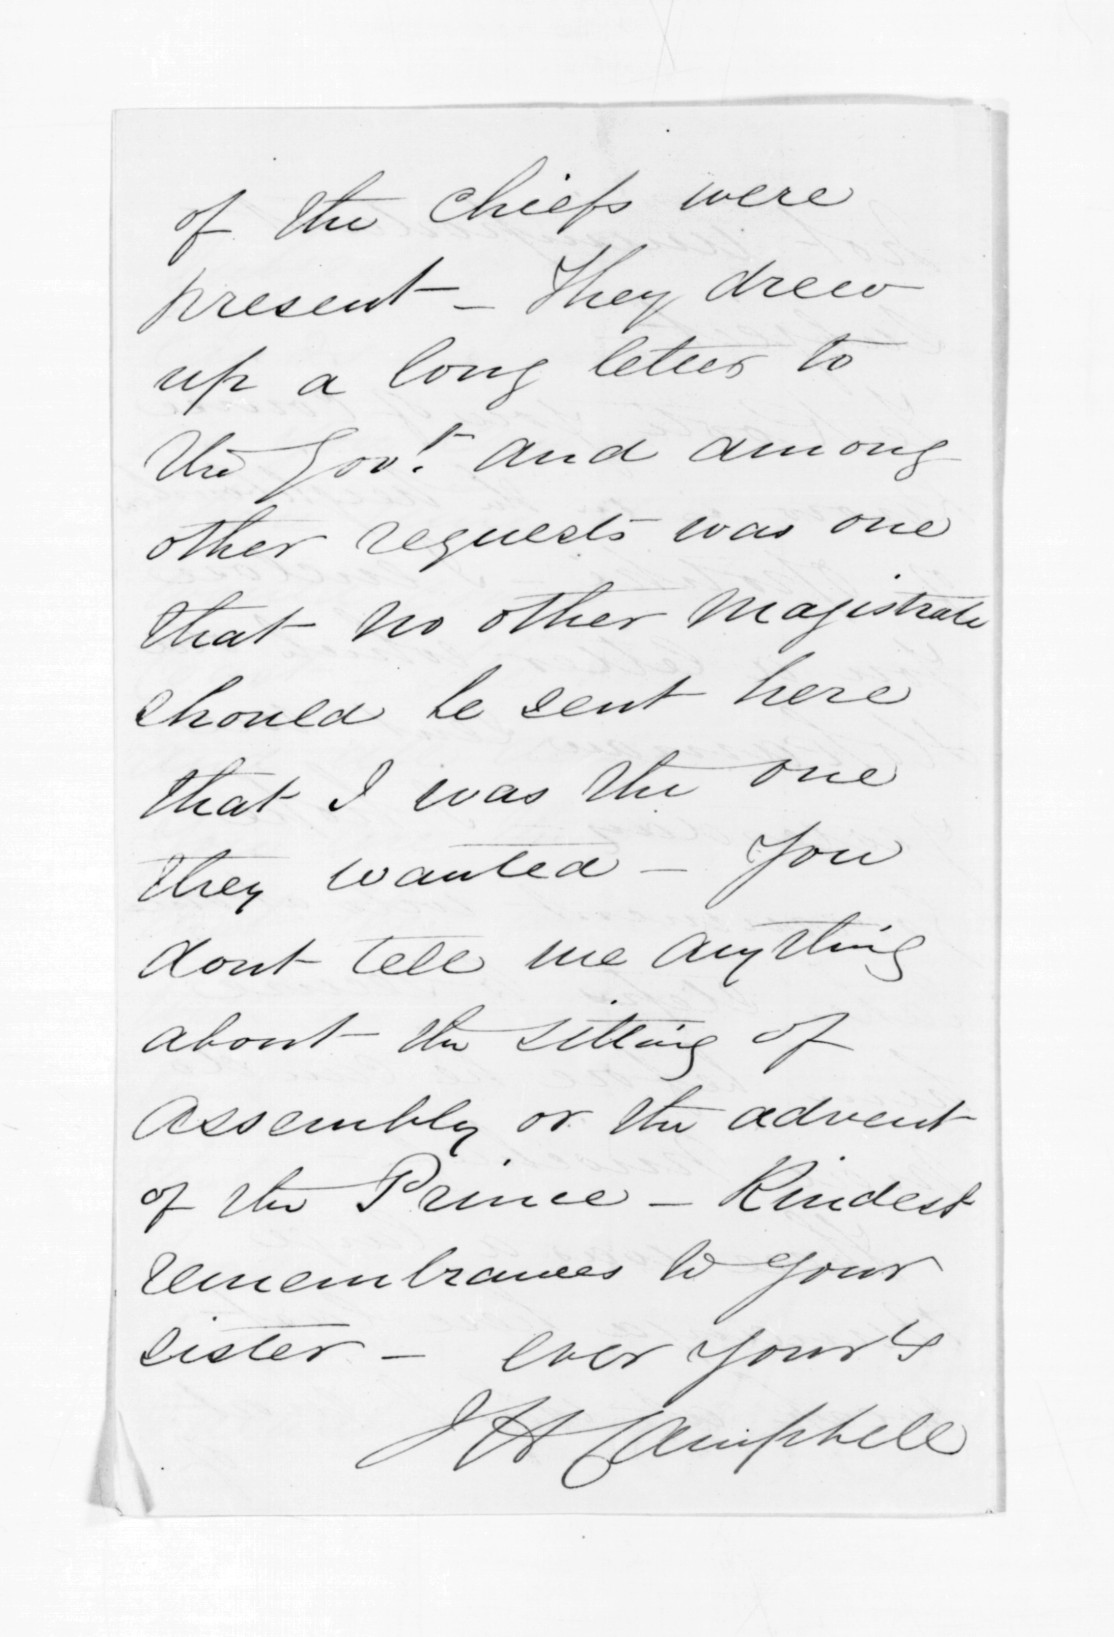 of the chiefs were
present - They drew
up a long letter to
the Govt. and among
other requests was one
that no other Magistrate
should be sent here
that I was the one
they wanted - You
dont tell me anything
about the sitting of
Assembly or the advent
of the Prince - Kindest
remembrances to your
sister - ever yours
J H Campbell